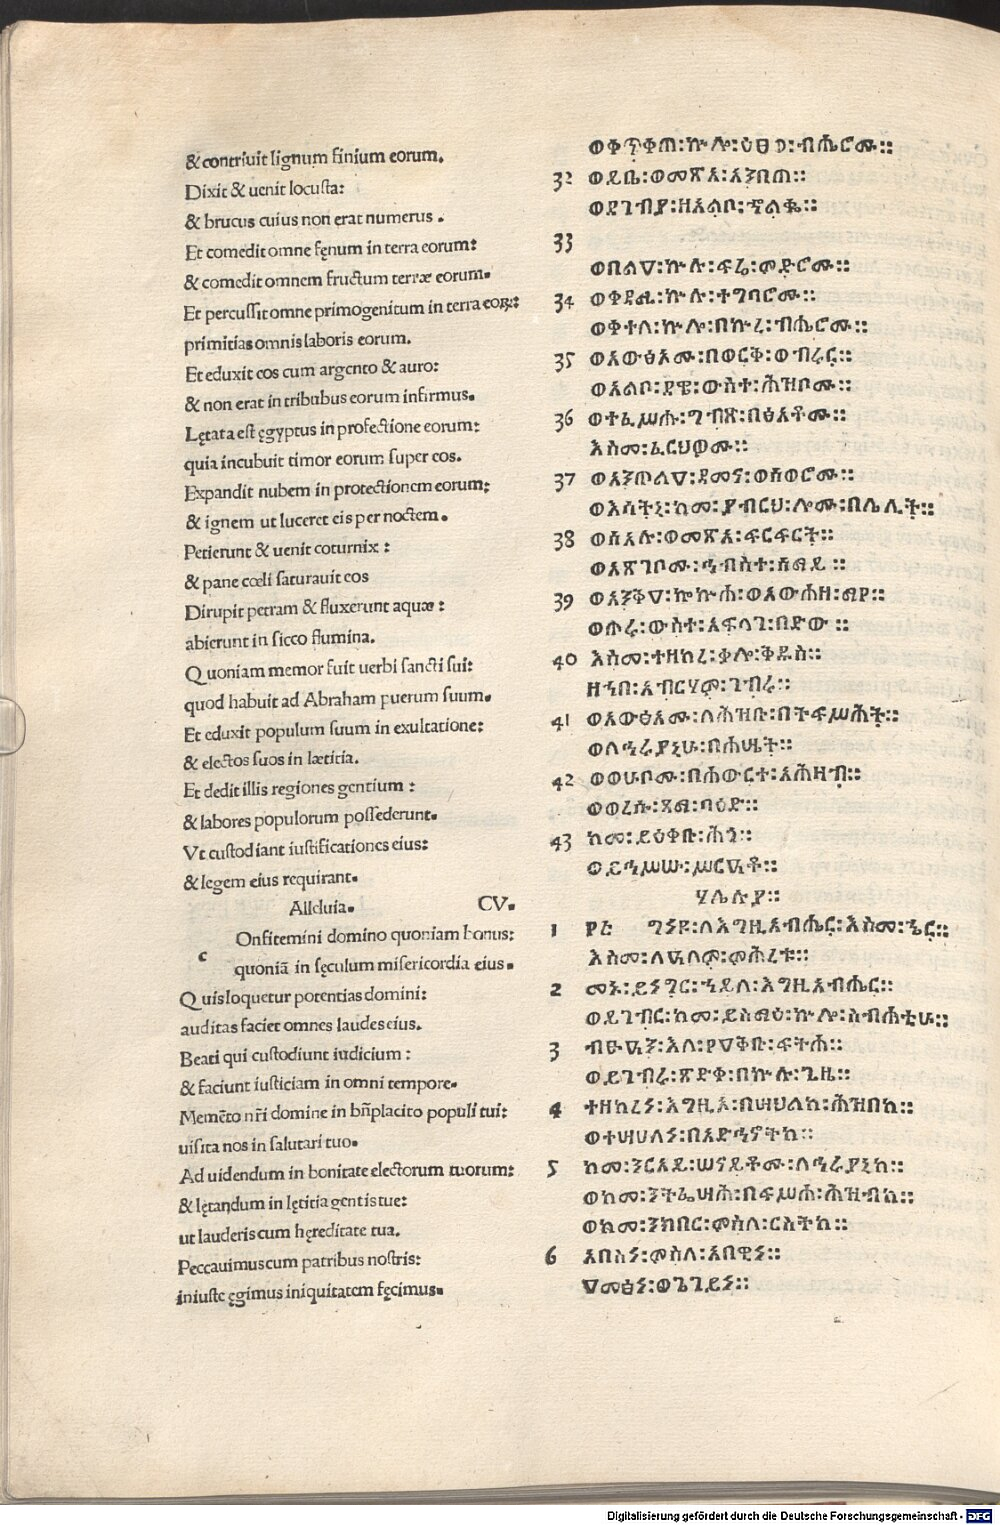 & contriuit lignum finium eorum.
Dixit & uenit locusta:
& brucus cuius non erat numerus .
Et comedit omne fęnum in terra eorum:
& comedit omnem fructum terræ eorum.
Et percussit omne primogenitum in terra eorꝝ:
primitias omnis laboris eorum.
Et eduxit eos cum argento & auro:
& non erat in tribubus eorum infirmus.
Lętata est ęgyptus in profectione eorum:
quia incubuit timor eorum super eos.
Expandit nubem in protectionem eorum:
& ignem ut luceret eis per noctem.
Petierunt & uenit coturnix :
& pane cœli saturauit eos
Dirupit petram & fluxerunt aquæ :
abierunt in sicco flumina.
Quoniam memor fuit uerbi sancti sui:
quod habuit ad Abraham puerum suum.
Et eduxit populum suum in exultatione:
& electos suos in lætitia.
Et dedit illis regiones gentium :
& labores populorum possederunt.
Vt custodiant iustificationes eius:
& legem eius requirant.
Alleluia. CV.
c Onfitemini domino quoniam bonus:
quoniã in sęculum misericordia eius.
Quis loquetur potentias domini:
auditas faciet omnes laudes eius.
Beati qui custodiunt iudicium :
& faciunt iusticiam in omni tempore.
Memẽto nr̃i domine in bñplacito populi tui:
uisita nos in salutari tuo.
Ad uidendum in bonitate electorum tuorum:
& lętandum in lętitia gentis tue:
ut lauderis cum hęreditate tua.
Peccauimus cum patribus nostris:
iniuste ęgimus iniquitatem fęcimus.
ወቀጥቀጠ፡ኵሎ፡ዕፀወ፡ብሔሮሙ።
32 ወይቤ፡ወመጽአ፡አንበጣ።
ወደጎብያ፡ዘአልቦ፡ኍልቈ።
33
ወበልዐ፡ኵሉ፡ፍሬ፡ምድሮሙ።
34 ወቀዳሜ፡ኵሉ፡ተግባሮሙ።
ወቀተለ፡ኵሎ፡በኵረ፡ብሔሮሙ።
35 ወአውፅኦሙ፡በወርቅ፡ወብሩር።
ወአልቦ፡ደዌ፡ውስተ፡ሕዝቦሙ።
36 ወተፈሥሐ፡ግብጽ፡በፀአቶሙ።
እስመ፡ፈርህዎሙ።
37 ወአንጦልዐ፡ደመና፡ወሰወሮሙ።
ወእሳትኒ፡ከመ፡ያብርህ፡ሎሙ፡በሌሊት።
38 ወሰአሉ፡ወመጽአ፡ፍርፍርት።
ወአጽገቦሙ፡ኅብስተ፡ሰማይ።
39 ወአንቅዐ፡ኰኵሐ፡ወአውሐዘ፡ማየ።
ወሖሩ፡ውስተ፡አፍላገ፡በድው።
40 እስመ፡ተዘከረ፡ቃሎ፡ቅዱስ።
ዘኀበ፡አብርሃም፡ገብሩ።
41 ወአውፅኦሙ፡ለሕዝቡ፡በትፍሥሕት።
ወለኅሩያኒሁ፡በሐሤት።
42 ወወሀቦሙ፡በሐውርተ፡አሕዛብ።
ወወረሱ፡ጻማ፡ባዕድ።
43 ከመ፡ይዕቀቡ፡ሕጎ።
ወይኅሥሡ፡ሥርዓቶ።
ሃሌሉያ።
1 ፻፭ ግነዩ፡ለእግዚአብሔር፡እስመ፡ኄር።
እስመ፡ለዓለም፡ምሕረቱ።
2 መኑ፡ይነግር፡ኀይለ፡እግዚአብሔር።
ወይገብር፡ከመ፡ይስማዕ፡ኵሎ፡ስብሐቲሁ።
3 ብፁዓን፡እለ፡የዐቅቡ፡ፍትሐ።
ወይገብሩ፡ጽድቀ፡በኵሉ፡ጊዜ።
4 ተዘከረነ፡እግዚኦ፡በሣህልከ፡ሕዝበከ።
ወተሣሀለነ፡በአድኅኖትከ።
5 ከመ፡ንርአይ፡ሠናይቶሙ፡ለኅሩያኒከ።
ወከመ፡ንትፌሣሕ፡በፍሥሐ፡ሕዝብከ።
ወከመ፡ንክበር፡ምስለ፡ርስትከ።
6 አበስነ፡ምስለ፡አበዊነ።
ዐመፅነ፡ወጌገይነ።
Digitalisierung gefördert durch die Deutsche Forschungsgemeinschaft - DFG